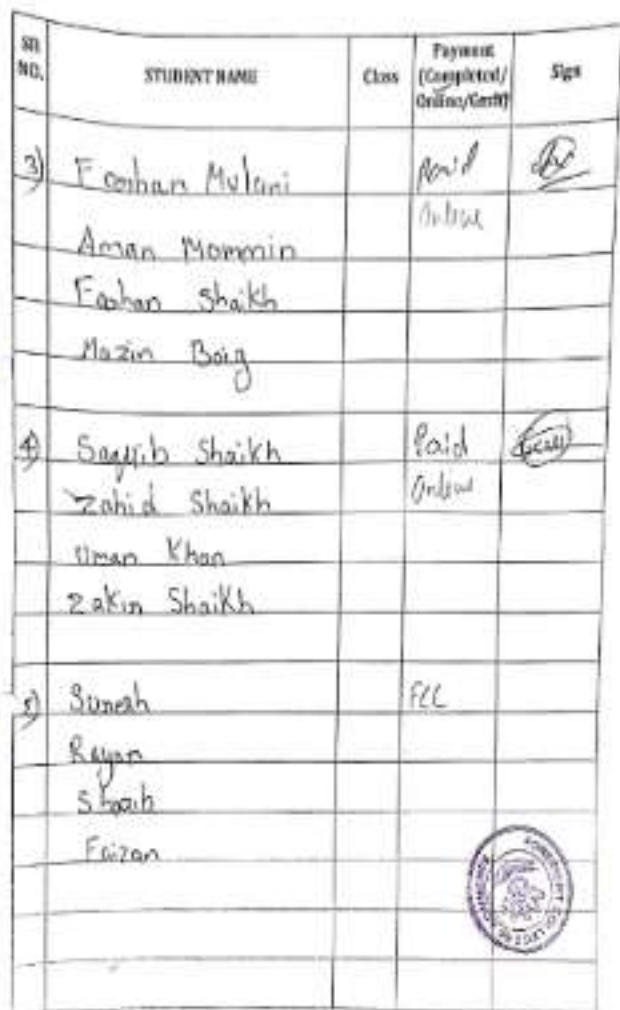 SR. NO. STUDENT NAME Class Payment (Completed/ Online/Cash) Sign
3) Farhan Mulani Paid
Aman Mommin Online
Farhan Shaikh
Mazin Baig
4) Saquib Shaikh Paid
Zahid Shaikh Online
Uman Khan
Zakin Shaikh
5) Sunesh FCC
Rayan
Shoaib
Faizan